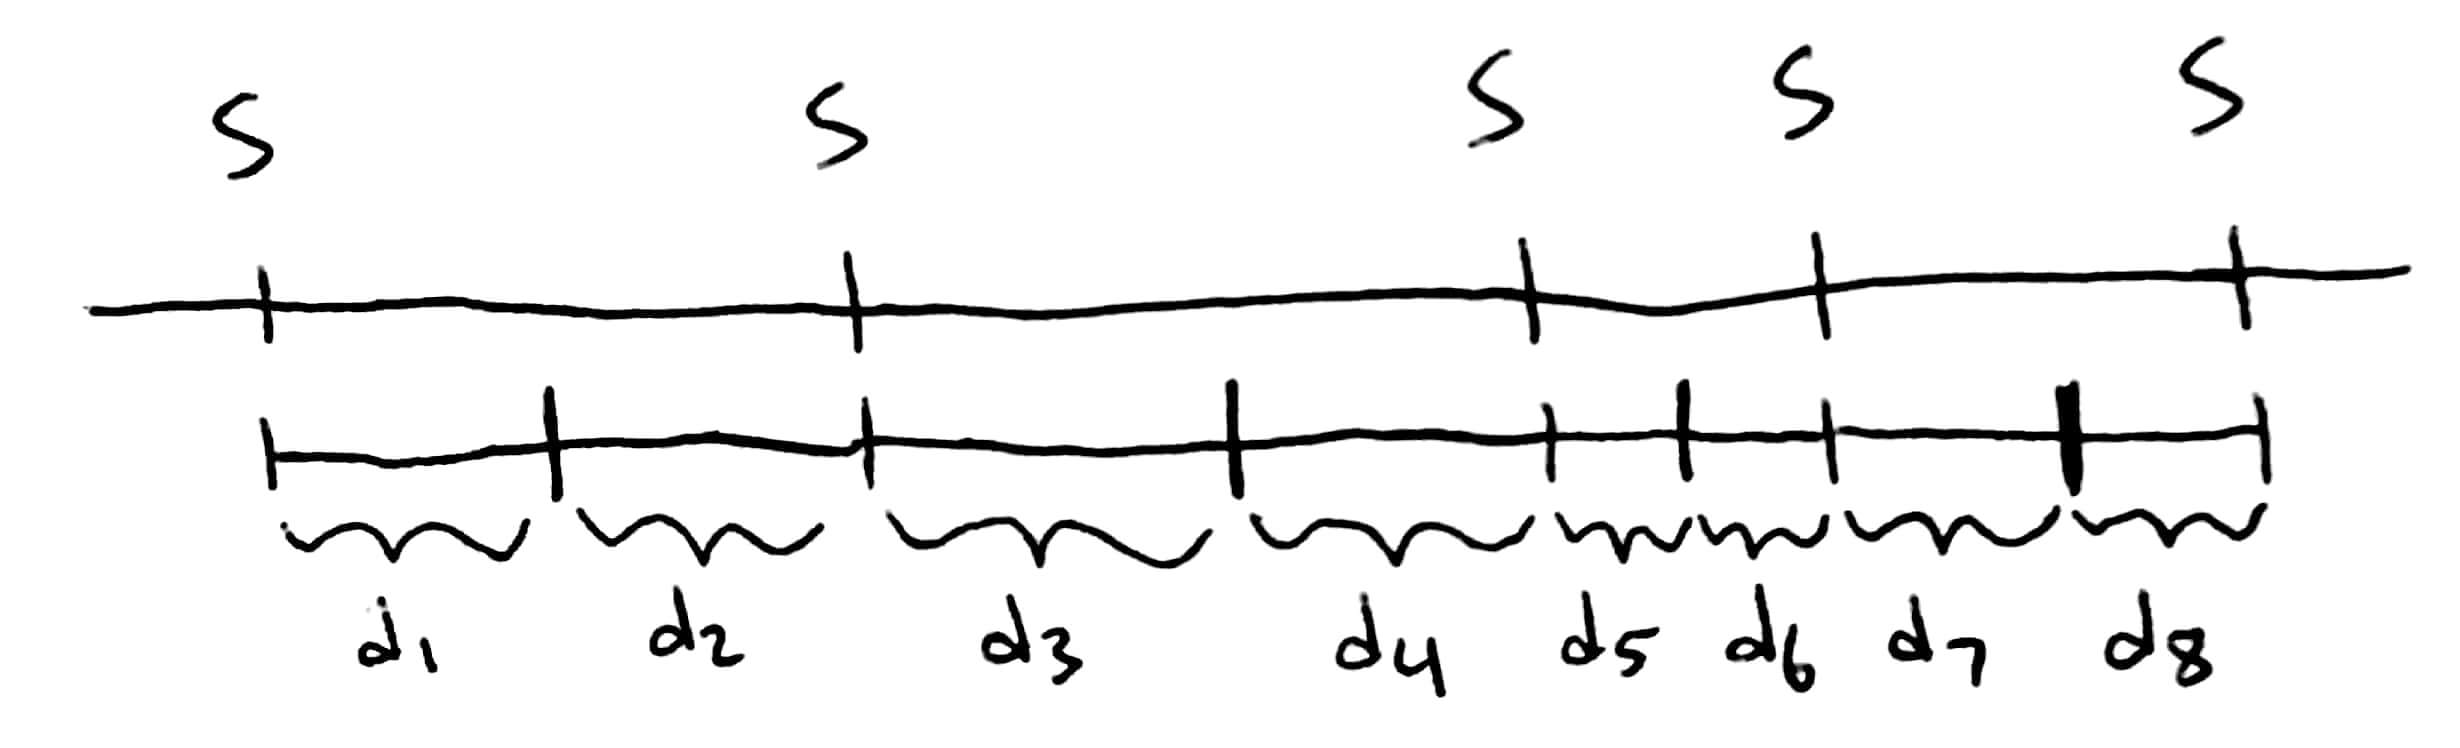 S S S S S
d1 d2 d3 d4 d5 d6 d7 d8